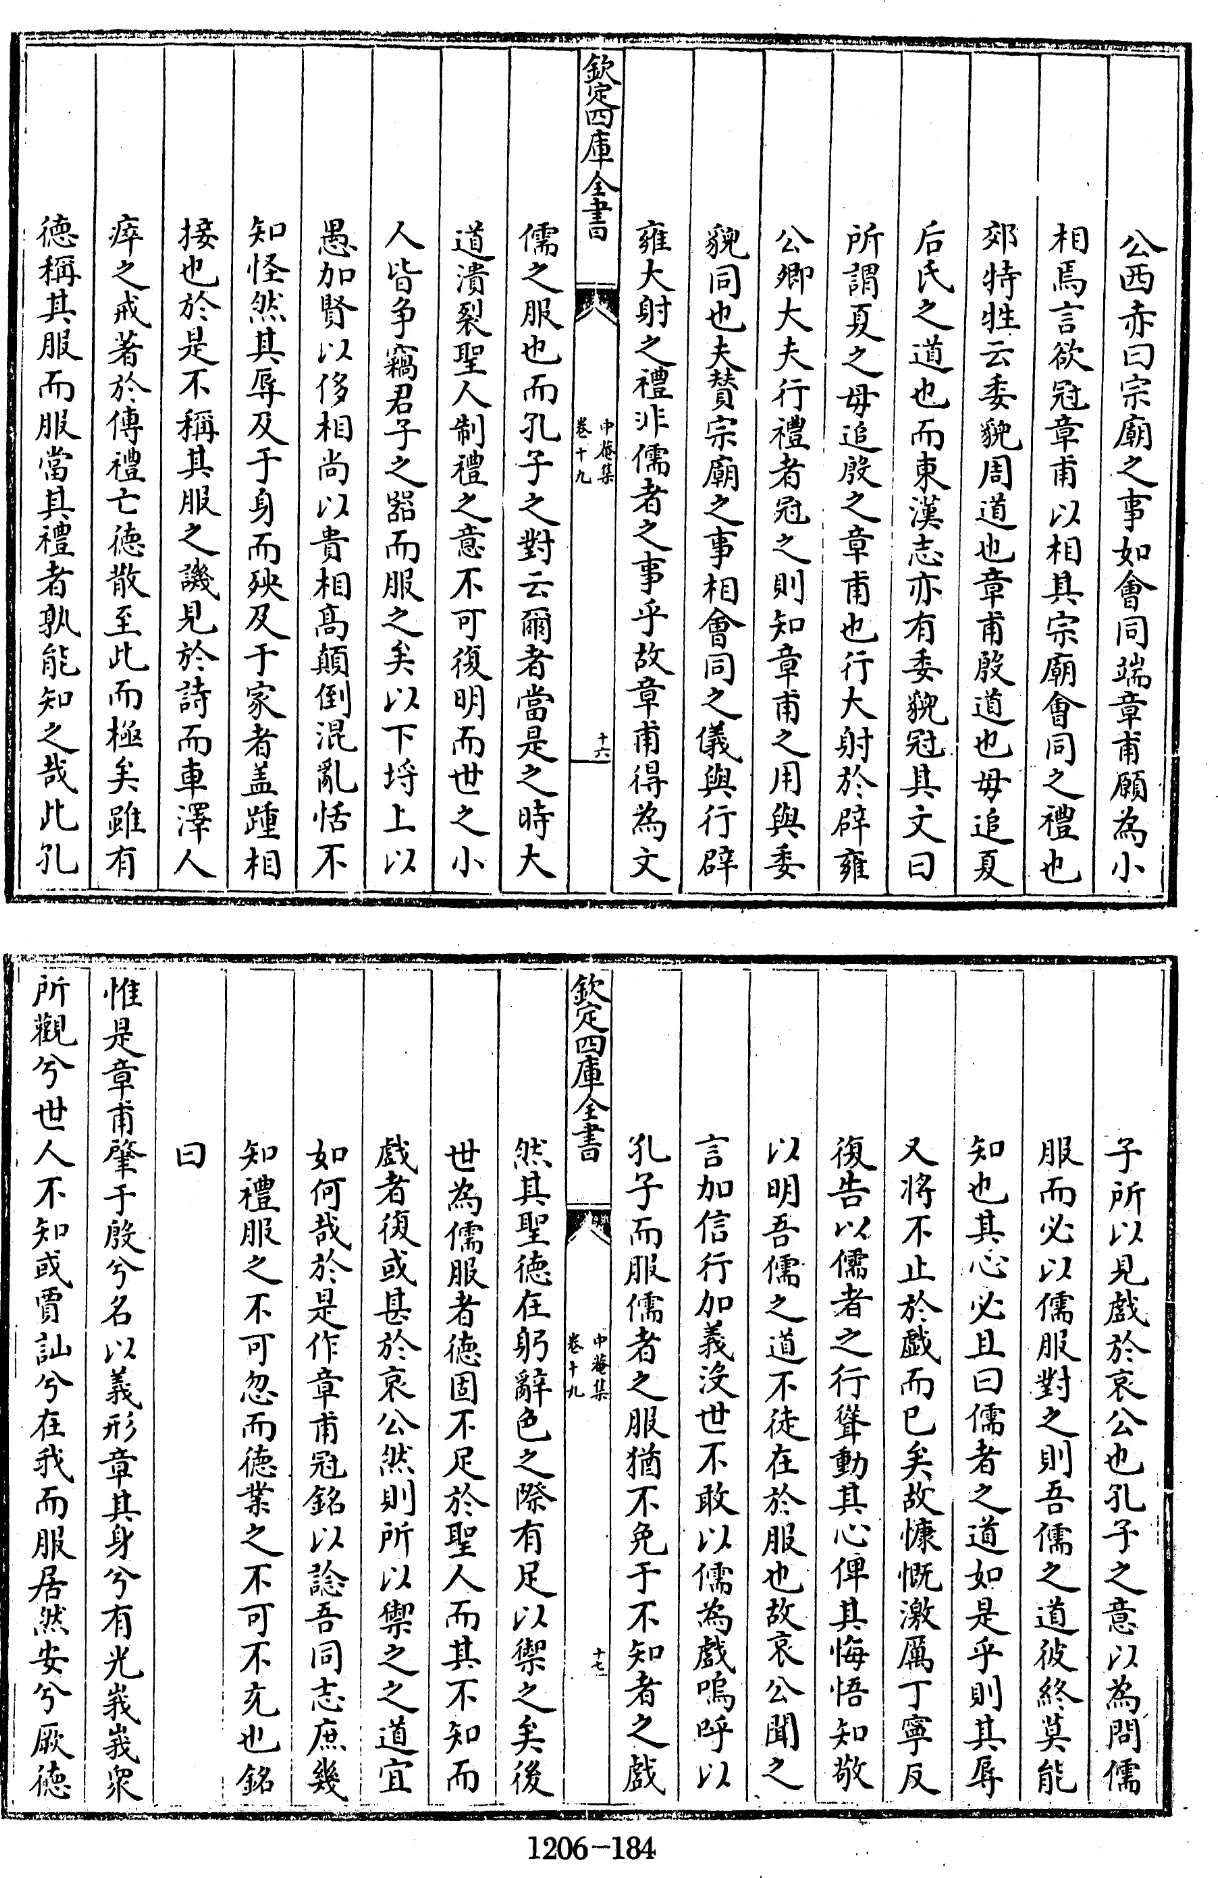 公西赤曰宗廟之事如會同端章甫願為小
相焉言欲冠章甫以相其宗廟會同之禮也
郊特牲云委貌周道也章甫殷道也毋追夏
后氏之道也而東漢志亦有委貌冠其文曰
所謂夏之毋追殷之章甫也行大射於辟雍
公卿大夫行禮者冠之則知章甫之用與委
貌同也夫贊宗廟之事相會同之儀與行辟
雍大射之禮非儒者之事乎故章甫得為文
欽定四庫全書
中菴集
卷十九
十六
儒之服也而孔子之對云爾者當是之時大
道潰裂聖人制禮之意不可復明而世之小
人皆争竊君子之器而服之矣以下埒上以
愚加賢以侈相尚以貴相高顛倒混亂恬不
知怪然其辱及于身而殃及于家者盖踵相
接也於是不稱其服之譏見於詩而車澤人
瘁之戒著於傳禮亡德散至此而極矣雖有
德稱其服而服當其禮者孰能知之哉此孔
子所以見戲於哀公也孔子之意以為問儒
服而必以儒服對之則吾儒之道彼終莫能
知也其心必且曰儒者之道如是乎則其辱
又將不止於戲而已矣故慷慨激厲丁寧反
復告以儒者之行聳動其心俾其悔悟知敬
以明吾儒之道不徒在於服也故哀公聞之
言加信行加義没世不敢以儒為戲嗚呼以
孔子而服儒者之服猶不免于不知者之戲
欽定四庫全書
中菴集
卷十九
十七
然其聖德在躬辭色之際有足以禦之矣後
世為儒服者德固不足於聖人而其不知而
戲者復或甚於哀公然則所以禦之之道宜
如何哉於是作章甫冠銘以諗吾同志庶幾
知禮服之不可忽而德業之不可不充也銘
曰
惟是章甫肇于殷兮名以義形章其身兮有光峩峩衆
所觀兮世人不知或賈訕兮在我而服居然安兮厥德
1206-184